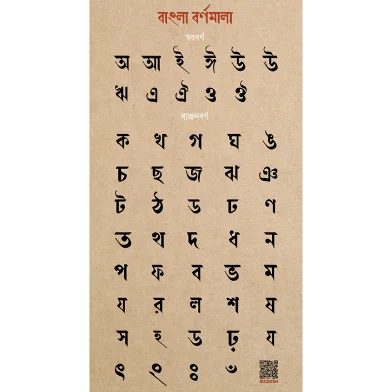 বাংলা বর্ণমালা
স্বরবর্ণ
অ আ ই ঈ উ উ
ঋ এ ঐ ও ঔ
ব্যঞ্জনবর্ণ
ক খ গ ঘ ঙ
চ ছ জ ঝ ঞ
ট ঠ ড ঢ ণ
ত থ দ ধ ন
প ফ ব ভ ম
য র ল শ ষ
স হ ড ঢ় য
ৎ ং ঃ ঁ